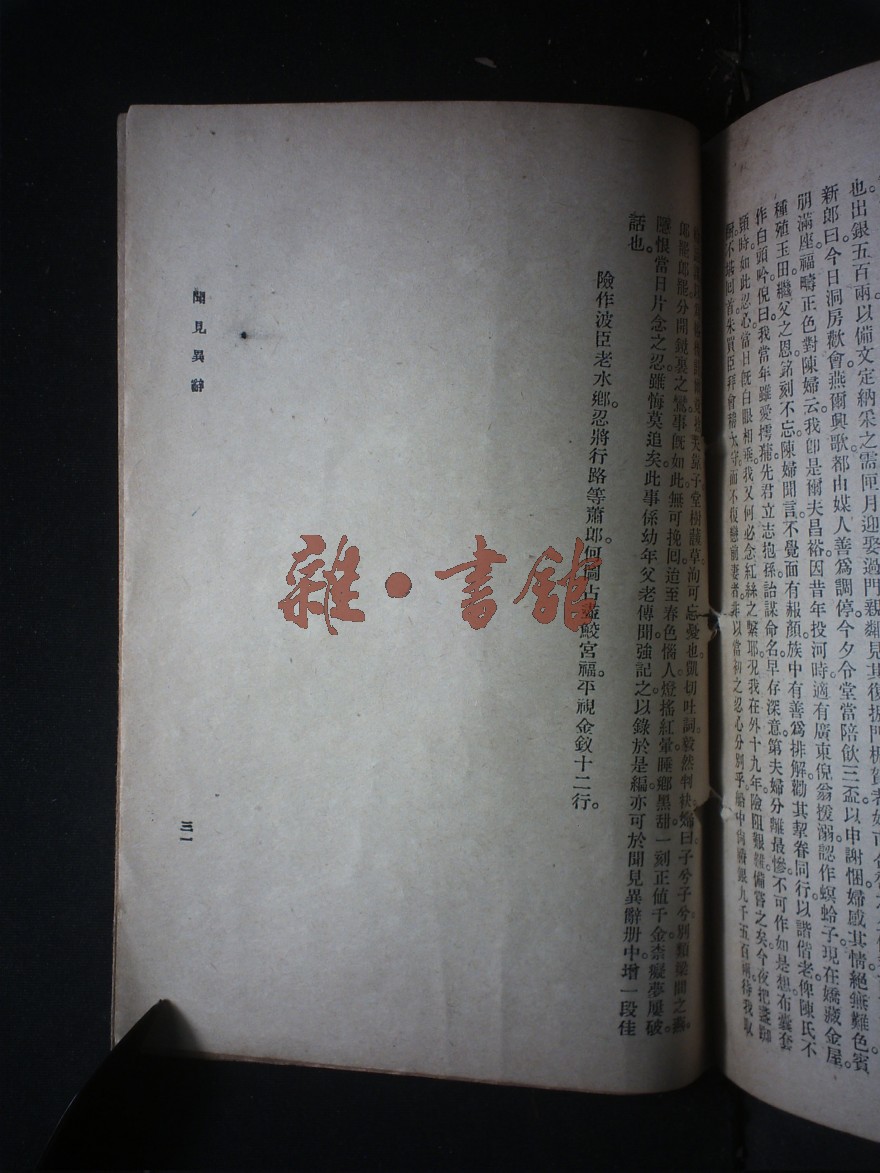 也出銀五百兩以備文定納采之需匝月迎娶過門親
新郎曰今日洞房歡會燕爾興歌都由媒人善爲調停今夕令堂當陪飲三盃以申謝悃婦感其情絕無難色賓
朋滿座福疇正色對陳婦云我卽是爾夫昌裕因昔年投河時適有廣東倪翁援溺認作螟蛉子現在嬌藏金屋
種殖玉田繼父之恩銘刻不忘陳婦聞言不覺面有赧顏族中有善爲排解勸其挈眷同行以諧偕老俾陳氏不
作白頭吟倪曰我當年雖愛摴蒲先君立志抱孫詒謀命名早存深意第夫婦分離最慘不可作如是想布囊套
頸時如此忍心當日旣白眼相乘我又何必念紅絲之繫耶況我在外十九年險阻艱難備嘗之矣今夜把盞
不堪回首朱買臣拜會稽太守而不復戀前妻者非以當初之忍心分別乎船中尙賸銀九千五百兩待我取
子堂樹蘐草洵可忘憂也凱切吐詞毅然判袂婦曰子兮子兮別類梁間之燕
郎罷郎罷分開鏡裏之鸞事旣如此無可挽囘迨至春色惱人燈搖紅暈睡鄉黑甜一刻正值千金柰癡夢屢破
隱恨當日片念之忍雖悔莫追矣此事係幼年父老傳聞強記之以錄於是編亦可於聞見異辭册中增一段佳
話也。
險作波臣老水鄉。忍將行路等蕭郎。何圖占盡鮫宮福。平視金釵十二行。
聞見異辭
三一
雜·書館